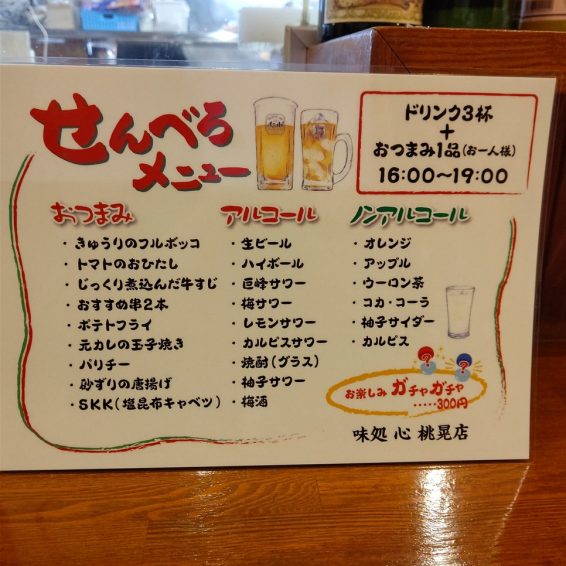 せんべろ
メニュー
ドリンク3杯
+
おつまみ1品(お一人様)
16:00~19:00
おつまみ
・きゅうりのフルボッコ
・トマトのおひたし
・じっくり煮込んだ牛すじ
・おすすめ串2本
・ポテトフライ
・元カレの玉子焼き
・パリチー
・砂ずりの唐揚げ
・SKK(塩昆布キャベツ)
アルコール
・生ビール
・ハイボール
・巨峰サワー
・梅サワー
・レモンサワー
・カルピスサワー
・焼酎(グラス)
・柚子サワー
・梅酒
ノンアルコール
・オレンジ
・アップル
・ウーロン茶
・コカ・コーラ
・柚子サイダー
・カルピス
? ?
お楽しみ ガチャガチャ
・・・・・300円
味処 心 桃晃店